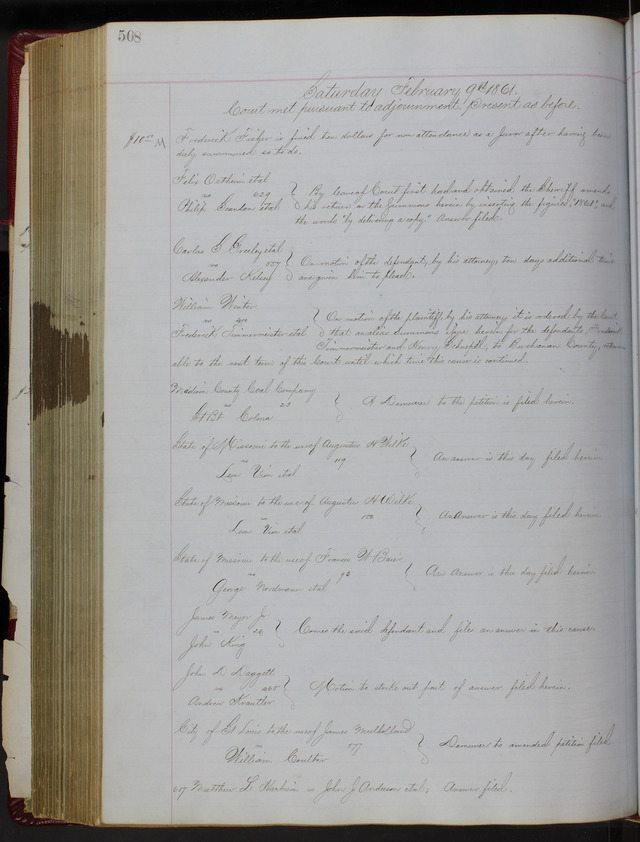 508
Saturday February 9th 1861.
Court met pursuant to adjournment, Present as before.
$10.00 Frederick Fisher is fined ten dollars for non attendance as a Juror after having been
duly summoned so to do.
Felix et al
vs 629 } By leave of Court first had and obtained, the Sheriff amends
Philip et al his return on the Summons herein by inserting the figures "1861", and
the words "by delivering a copy." Answer filed.
Carlos S. Greeley et al
vs 577 } On motion of the defendant, by his attorney, ten days additional time
Alexander Kelsey are given him to plead.
William Winter
vs } On motion of the plaintiff by his attorney it is ordered by the Court
Frederick Timmermeister et al that an alias Summons issue herein for the defendants, Frederick
Timmermeister and Henry to Buchanan County,
able to the next term of this Court until which time this cause is continued.
County Coal Company
vs 23 } A Demurrer to the petition is filed herein.
St Bt Colona
State of Missouri to the use of Augustus H Wilke
vs 119 } An answer is this day filed herein
et al
State of Missouri to the use of Augustus H Wilke
vs } An Answer is this day filed herein
et al
State of Missouri to the use of Francis W
vs 93 } An Answer is this day filed herein.
George Nordmann et al
James Meyer Jr
vs 26 } Comes the said defendant and files an answer in this cause.
John King
John D Daggett
vs } Motion to strike out part of answer filed herein.
Andrew
City of St Louis to the use of James Mulholland
vs 777 } Demurrer to amended petition filed
William Coulter
Matthew L vs John J Anderson et al; Answer filed.